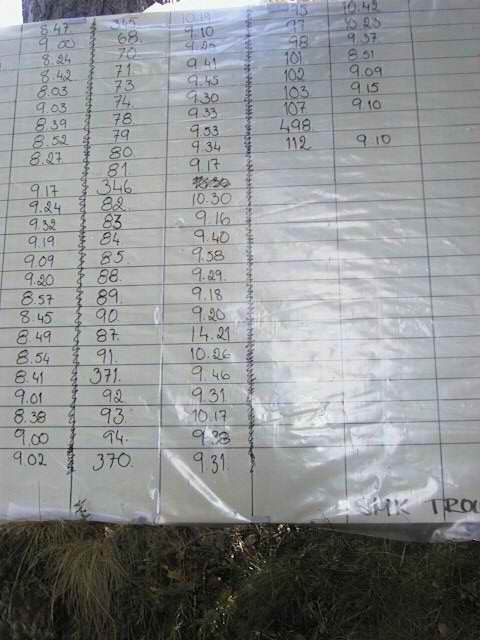 8.47 10.42
9.00 68 9.10 97 10.23
8.24 70 98 9.37
8.42 71 9.41 101 8.51
8.03 73 9.45 102 9.09
9.03 74 9.30 103 9.15
8.39 78 9.33 107 9.10
8.52 79 9.53 498.
8.27 80 9.34 112 9.10
81. 9.17
9.17 346
9.24 82. 10.30
9.32 83 9.16
9.19 84 9.40
9.09 85. 9.58
9.20 88. 9.29.
8.57 89. 9.18
8.45 90 9.20
8.49 87. 14.21
8.54 91. 10.26
8.41 371. 9.46
9.01 92 9.31
8.38 93. 10.17
9.00 94. 9.38
9.02 370. 9.31.
SMK